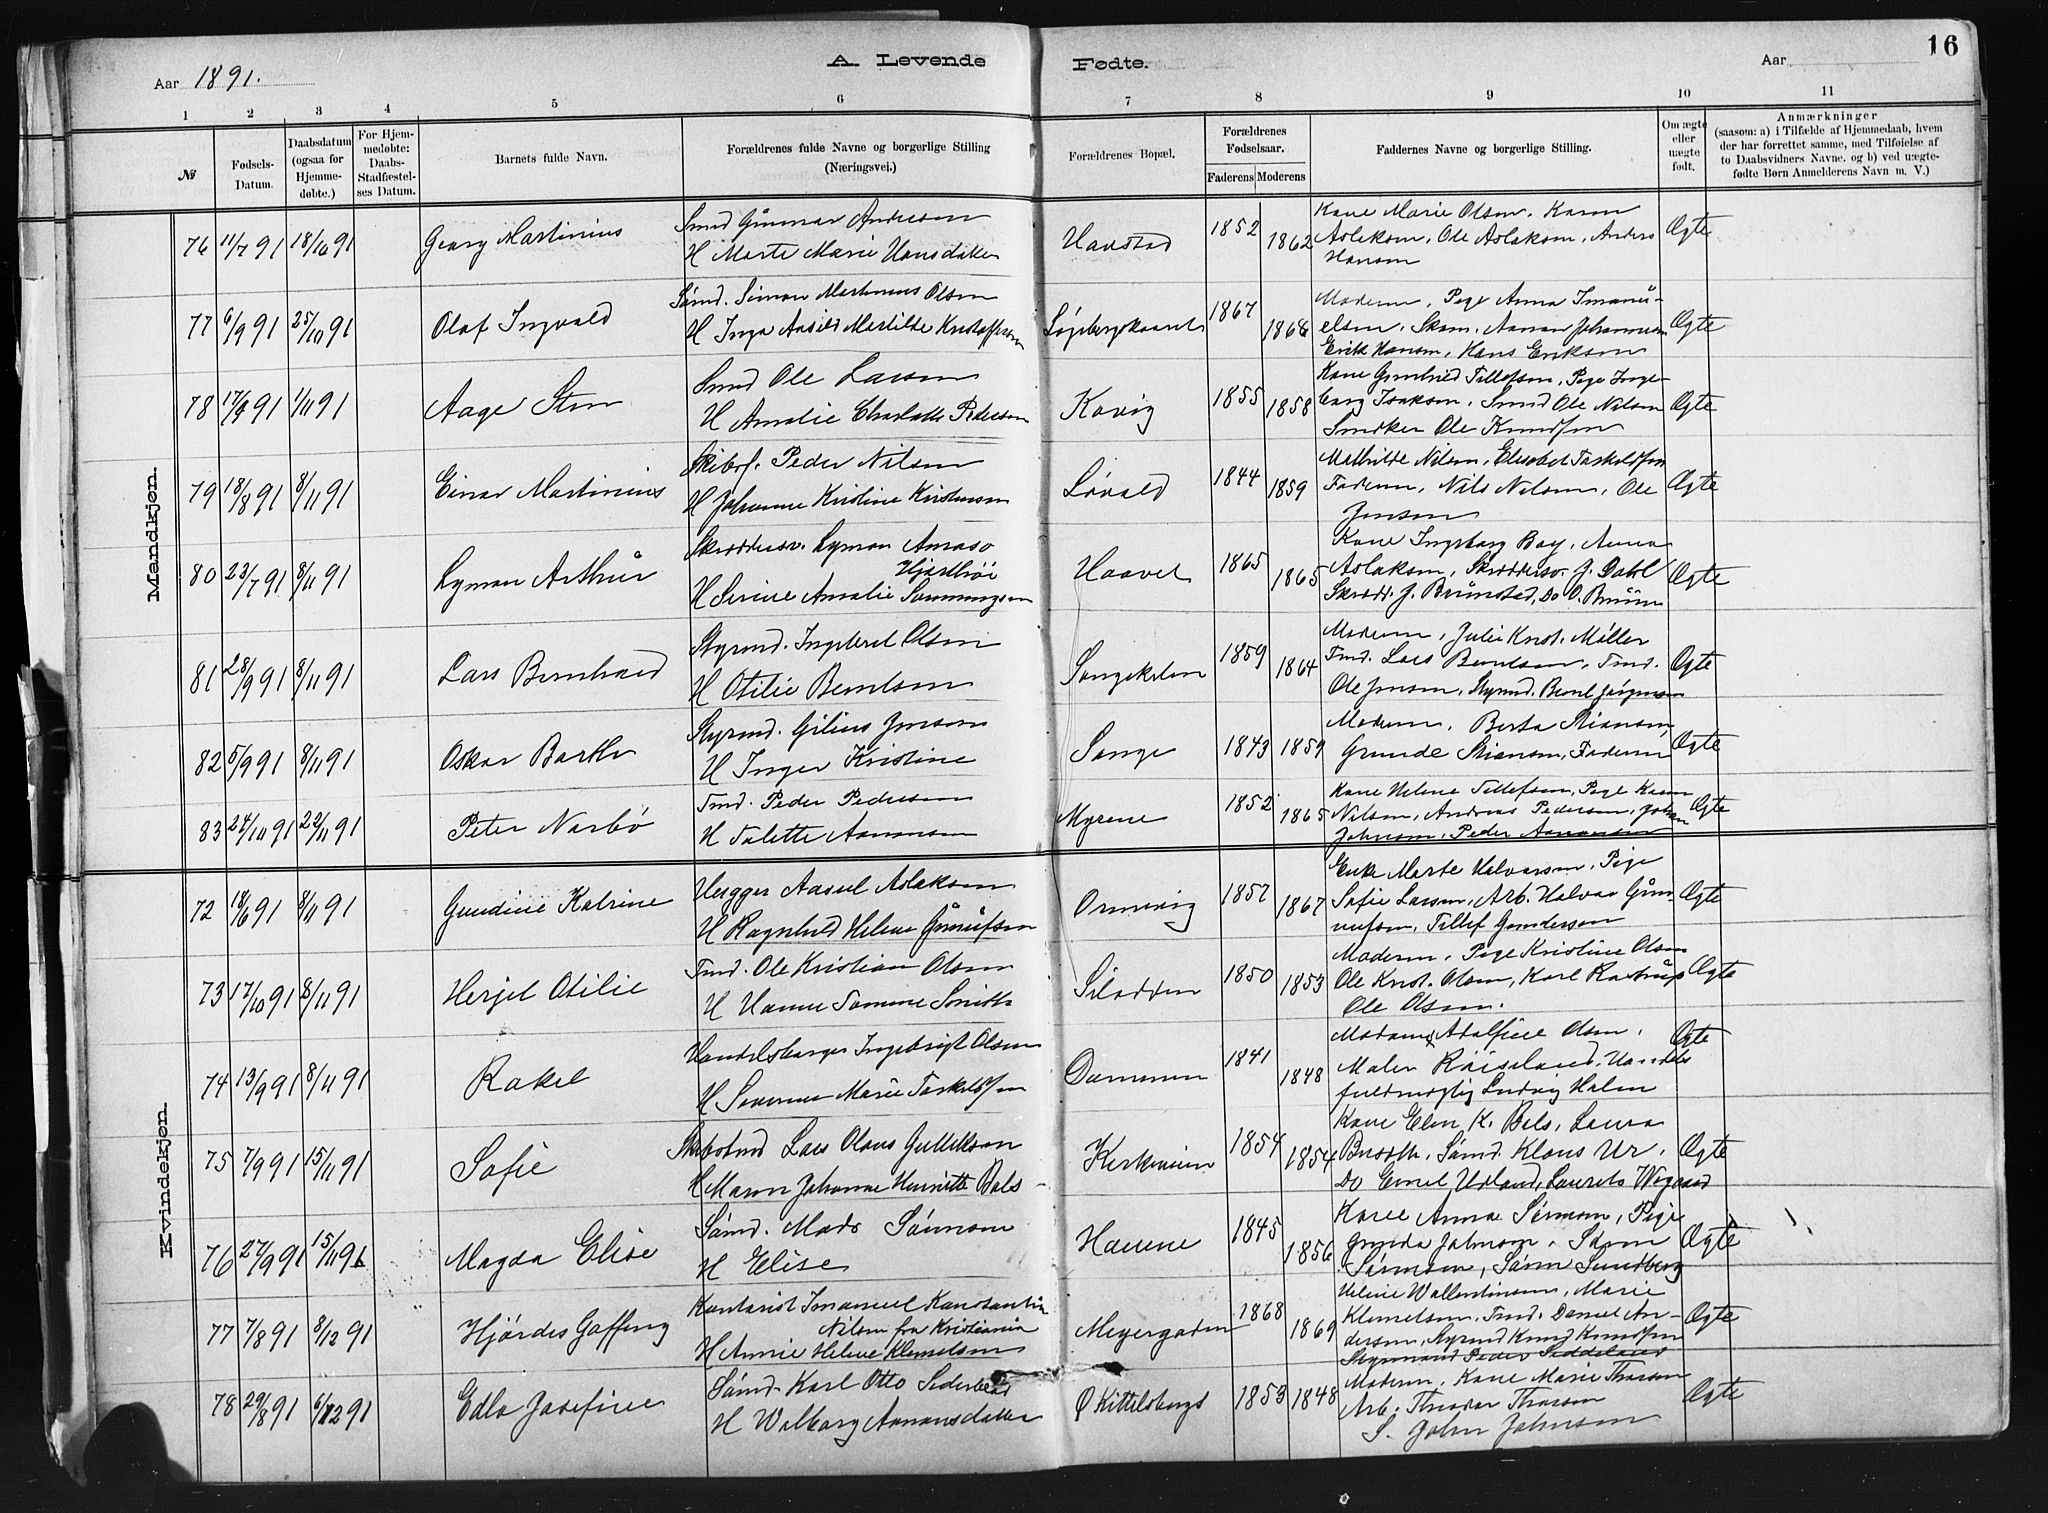 Aar 1891.
A. Levende
Fødte.
Aar
16
1 2 3 4 5 6 7 8 9 10 11
№
Fødsels-
Datum.
Daabsdatum
(ogsaa for
Hjemme-
døbte.)
For Hjem-
medøbte:
Daabs-
Stadfæstel-
ses Datum.
Barnets fulde Navn.
Forældrenes fulde Navne og borgerlige Stilling
(Næringsvei.)
Forældrenes Bopæl.
Forældrenes
Fødselsaar.
Faderens Moderens
Faddernes Navne og borgerlige Stilling.
Om ægte
eller
uægte
født.
Anmærkninger
(saasom: a) i Tilfælde af Hjemmedaab, hvem
der har forrettet samme, med Tilføielse af
to Daabsvidners Navne. og b) ved uægte-
fødte Børn Anmelderens Navn m. V.)
Mandkjøn.
76 11/7 91 18/10 91 Georg Martinius
Smed Gunnar Andersen
H Marte Marie Hansdatter
Havstad 1852 1862
Kone Marie Olsen, Karen
Aslaksen, Ole Aslaksen, Anders
Hansen
Ægte
77 6/9 91 25/10 91 Olaf Ingvald
Sømd. Simon Martinus Olsen
H Inga Aasild Matilde Kristoffersen
1867
Moderen, Pige Anna Imanu-
elsen, Aanon Johannesen
Erik Hansen, Hans Eriksen
Ægte
78 91 1/11 91 Aage Sten
Smed Ole Larsen
H Amalie Charlotte Pedersen
Kovig 1855 1858
Kone Gunhild Tellefsen, Pige Inge-
borg Isaksen, Smed Ole Nilsen
Snedker Ole Knudsen
Ægte
79 18/8 91 8/11 91 Einar Martinius
Skibsf. Peder Nilsen
H Johanne Kristine Kristensen
Løvold 1844 1859
Mathilde Nilsen, Elisabet Taskildsen
Faderen, Nils Nilsen, Ole
Jensen
Ægte
80 23/7 91 8/11 91 Lyman Arthur
Skræddersv. Lyman Amaso
Hjorthøi
H Serine Amalie Sammingsen
Haavet 1865 1865
Kone Ingeborg Bay, Anna
Aslaksen, Skræddersv. J. Dahl
Skrædd. J. Brunstad, Do O. Bruun
Ægte
81 28/9 91 8/11 91 Lars Bernhard
Styrmd. Ingebret Olsen
H Otilie Berntsen
Songekilen 1859 1864
Moderen, Julie Krist. Møller
Tmd. Lars Berntsen, Tmd.
Ole Jensen, Styrmd. Bernt Jørgensen
Ægte
82 5/9 91 8/11 91 Oskar Barth
Styrmd. Gilius Jensen
H Inger Kristine
Songe 1843 1859
Moderen, Berta Stiansen,
Grunde Stiansen, Faderen
Ægte
83 24/10 91 22/11 91 Peter Narbø
Tmd. Peder Pedersen
H Talette Aanonsen
Myrene 1852 1865
Kone Helene Tellefsen, Pige Karen
Nilsen, Andreas Pedersen, Johan
Johnsen, Peder Aanonsen
Ægte
Kvindekjøn.
72 18/6 91 8/11 91 Gundine Katrine
Aasul Aslaksen
H Ragnhild Helene Gunnufsen
Ormvig 1857 1867
Enke Marte Halvorsen, Pige
Sofie Larsen, Arb. Halvor Gun-
nufsen, Tellef Gundersen
Ægte
73 17/10 91 8/11 91 Herjet Otilie
Tmd. Ole Kristian Olsen
H Hanne Tomine Smith
1850 1853
Moderen, Pige Kristine Olsen
Ole Krist. Olsen, Karl Rastrup
Ole Olsen.
Ægte
74 13/9 91 8/11 91 Rakel
Handelsborger Ingebrigt Olsen
H Severine Marie Taskildsen
Dammen 1841 1848
Madame Adolfine Olsen,
Maler Røiseland, Handels
fuldmægtig Ludvig Holm
Ægte
75 7/9 91 15/11 91 Sofie
Lars Olaus Gulliksen
H Maren Johanne Henriette Bals
Kirkeveien 1854 1854
Kone Elen K. Bels, Laura
Sømd. Klaus Ur,
Do Emil Udland, Laurits Wegard
Ægte
76 27/9 91 15/11 91 Magda Elise
Sømd. Mads Sørensen
H Elise
Havene 1845 1856
Kone Anna Sørensen, Pige
Gunda Johnsen, Søren
Sørensen, Søren Sundberg
Ægte
77 7/8 91 8/12 91 Hjørdes Goffeng
Kontorist Imanuel Konstantin
Nilsen fra Kristiania
H Annie Helene Klemetsen
Meyergaden 1868 1869
Helene Wallentinsen, Marie
Klemetsen, Tmd. Daniel An-
dersen, Styrmd Knud Knudsen
Styrmand Peder Seddeland
Ægte
78 29/8 91 6/12 91 Edla Josefine
Sømd. Karl Otto Sederblad
H Walborg Aanonsdatter
Ø Kittelsbugt 1853 1848
Moderen, Kone Marie Thorsen
Arb. Theodor Thorsen
S. John Johnsen
Ægte